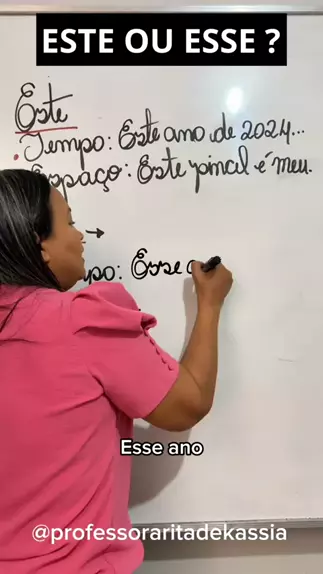 ESTE OU ESSE ?
Este
Tempo: Este ano de 2024...
Espaço: Este pincel é meu.
→
po: Esse a
Esse ano
@professoraritadekassia